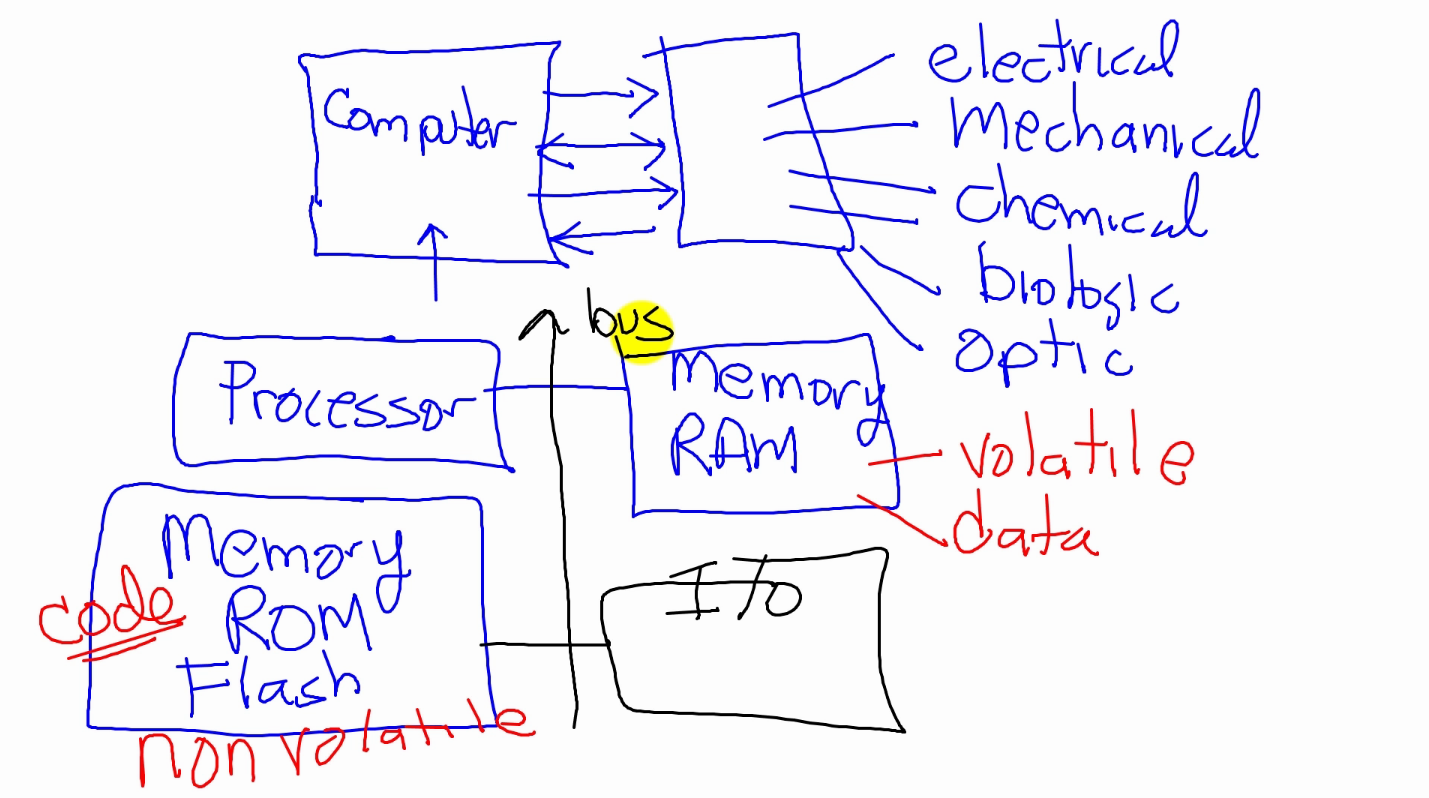 Computer
electrical
mechanical
chemical
biologic
optic
bus
Processor
Memory
RAM
volatile
data
Memory
ROM
Flash
code
non volatile
I/O